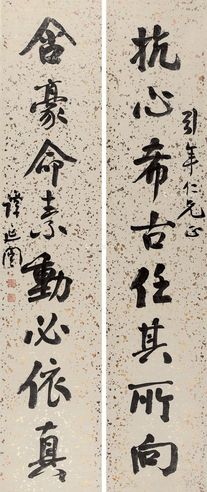 抗心希古任其所向
引年仁兄正
含豪命素動必依真
譚延闓